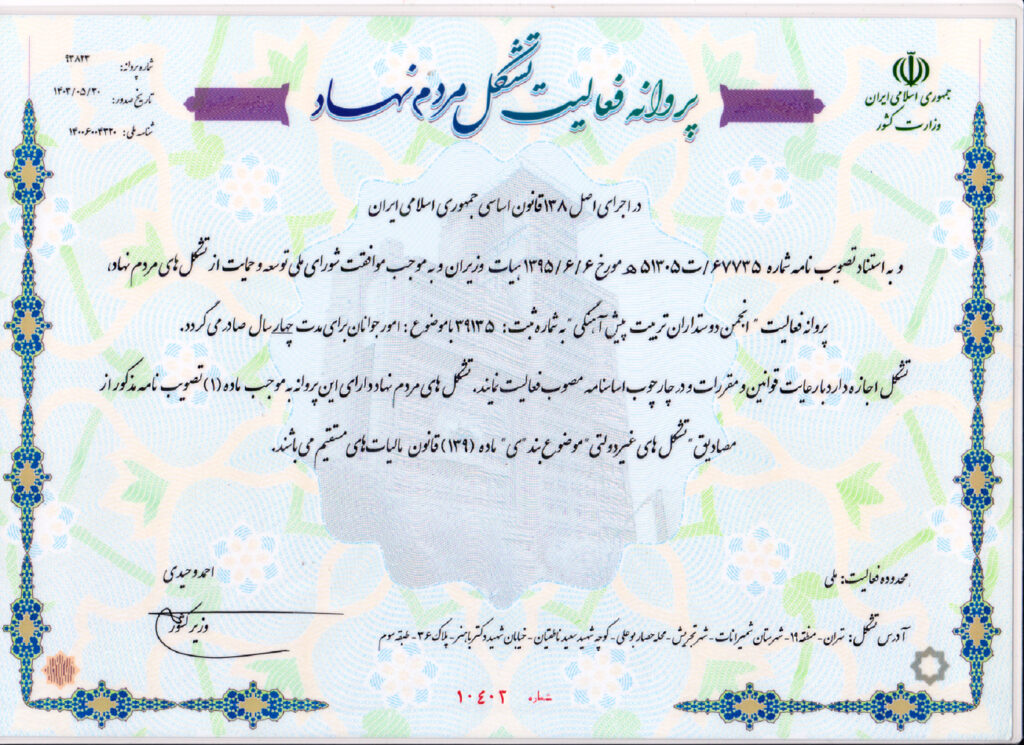 جمهوری اسلامی ایران
وزارت کشور
پروانه فعالیت تشکل مردم نهاد
شماره پروانه: ۹۳۸۲۳
تاریخ صدور: ۱۴۰۲/۰۵/۳۰
شناسه ملی: ۱۴۰۰۶۰۰۴۳۲۰
در اجرای اصل ۱۳۸ قانون اساسی جمهوری اسلامی ایران
و به استناد تصویب نامه شماره ۶۷۷۳۵/ت۵۱۳۰۵ هـ مورخ ۱۳۹۵/۶/۶ هیات وزیران و به موجب موافقت شورای ملی توسعه و حمایت از تشکل های مردم نهاد،
پروانه فعالیت " انجمن دوستداران تربیت پیش آهنگی " به شماره ثبت: ۳۹۱۳۵ با موضوع : امور جوانان برای مدت چهار سال صادر می گردد.
تشکل اجازه دارد با رعایت قوانین و مقررات و در چارچوب اساسنامه مصوب فعالیت نمایند. تشکل های مردم نهاد دارای این پروانه به موجب ماده (۱) تصویب نامه مذکور از
مصادیق "تشکل های غیردولتی" موضوع بند "ی" ماده (۱۳۹) قانون مالیات‌های مستقیم می باشند.
محدوده فعالیت: ملی
احمد وحیدی
وزیر کشور
آدرس تشکل: تهران- منطقه ۱۹- شهرستان شمیرانات- شهر تجریش- محله حصار بوعلی- کوچه شهید سعید ناطقیان- خیابان شهید دکتر باهنر- پلاک ۳۶- طبقه سوم
شماره ۱۰۴۰۲